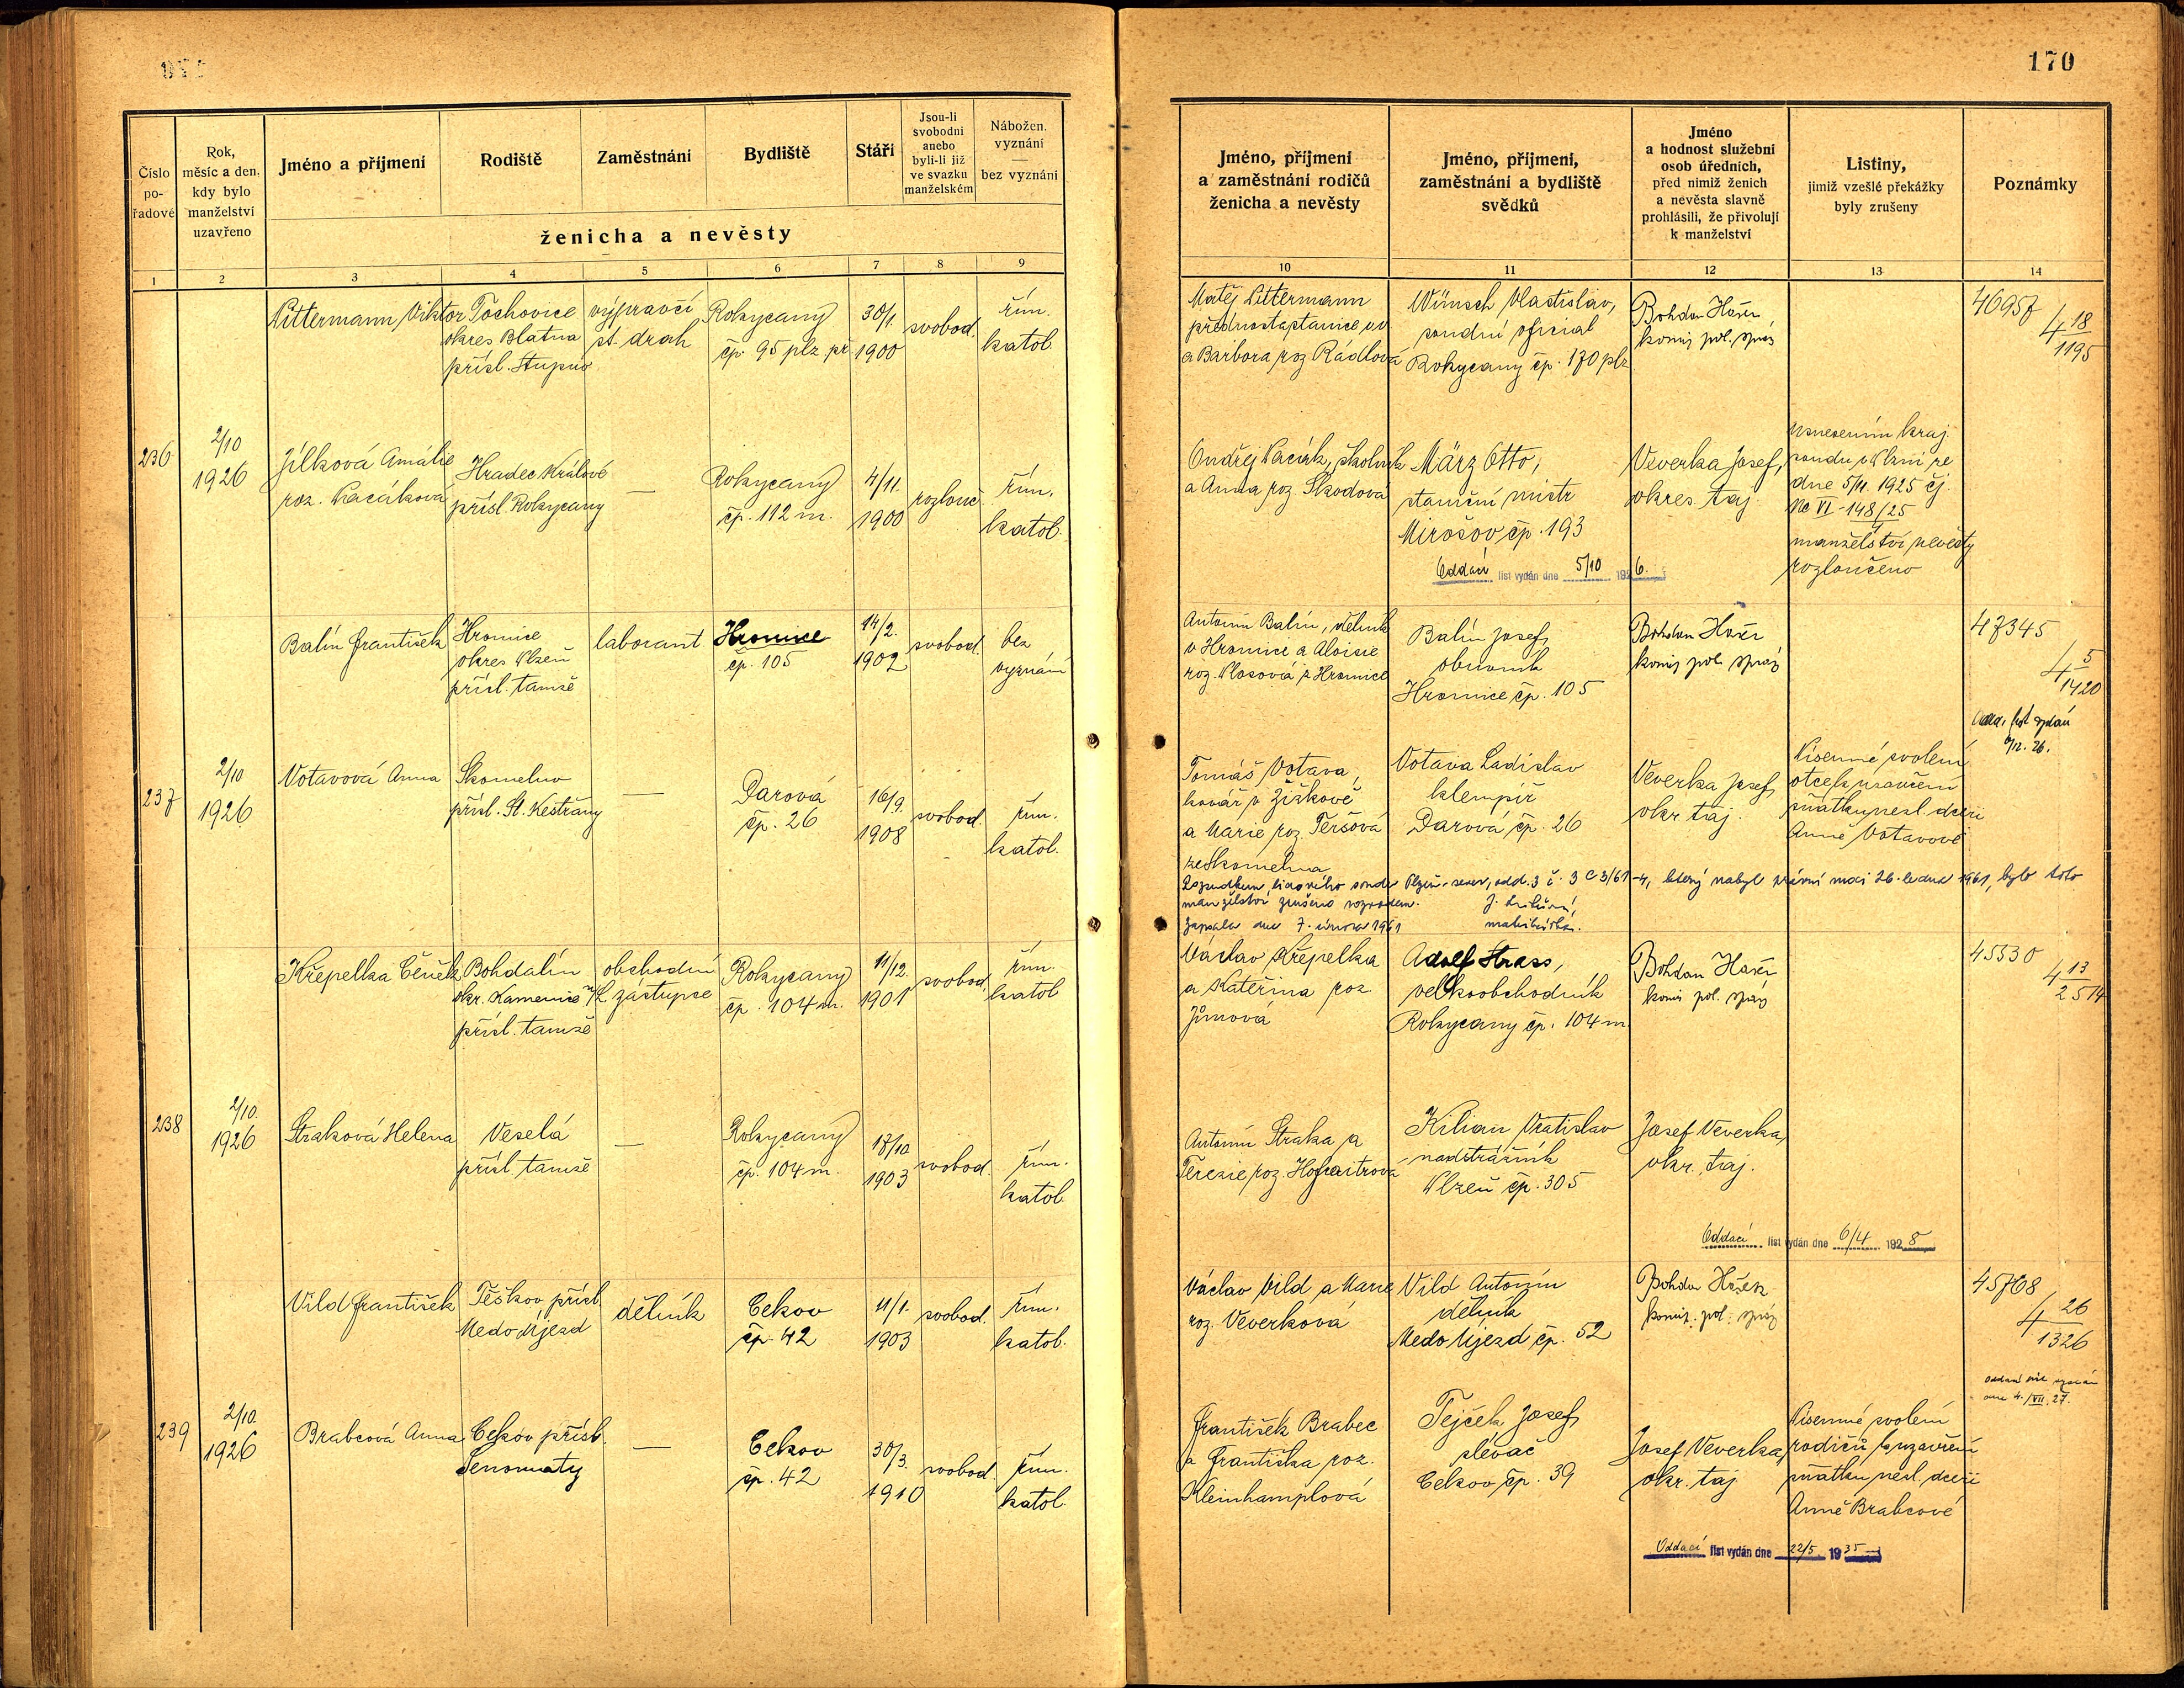 170
Číslo pořadové
Rok, měsíc a den, kdy bylo manželství uzavřeno
Jméno a příjmení
Rodiště
Zaměstnání
Bydliště
Stáří
Jsou-li svobodni anebo byli-li již ve svazku manželském
Nábožen. vyznání — bez vyznání
ženicha a nevěsty
Jméno, příjmení a zaměstnání rodičů ženicha a nevěsty
Jméno, příjmení, zaměstnání a bydliště svědků
Jméno a hodnost služební osob úředních, před nimiž ženich a nevěsta slavně prohlásili, že přivolují k manželství
Listiny, jimiž vzešlé překážky byly zrušeny
Poznámky
1 2 3 4 5 6 7 8 9
10 11 12 13 14
Littermann Viktor
Tochovice
okres Blatna
přísl. Stupno
výpravčí
st. drah
Rokycany
čp. 95 plz. př.
30/1.
1900
svobod.
řím.
katol.
Matěj Littermann
přednosta stanice
a Barbora roz. Rádlová
Wünsch Vlastislav,
soudní oficial
Rokycany čp. 170 plz
Bohdan Hašek
komis. pol. správy
46957
4 18
1195
236
2/10
1926
Jílková Amálie
roz. Kacákova
Hradec Králové
přísl. Rokycany
—
Rokycany
čp. 112 m.
4/11.
1900
rozlouč.
řím.
katol.
Ondřej Kacák, školník
a Anna roz. Škodová
März Otto,
staniční mistr
Mirošov čp. 193
Veverka Josef,
okres. taj.
Usnesením kraj.
soudu v Plzni ze
dne 5/11. 1925 čj.
Nc VI - 148/25
manželství nevěsty
rozloučeno
Oddací list vydán dne 5/10 1926.
Balín František
Hromice
okres Plzeň
přísl. tamže
laborant
Hromice
čp. 105
14/2.
1902
svobod.
bez
vyznání
Antonín Balín, dělník
v Hromici a Aloisie
roz. Vlasová z Hromice
Balín Josef,
obuvník
Hromice čp. 105
Bohdan Hašek
komis. pol. správy
47345
4 5
1420
Odd. list vydán
26.
237
2/10
1926
Votavová Anna
Skomelno
přísl. St. Kestřany
—
Darová
čp. 26
16/9.
1908
svobod.
řím.
katol.
Tomáš Votava,
kovář v Žižkově
a Marie roz. Teršová
ze Skomelna
Votava Ladislav
klempíř
Darová čp. 26
Veverka Josef,
okr. taj.
Písemné svolení
otce k uzavření
sňatku nezl. dceři
Anně Votavové
Rozsudkem lidového soudu Plzeň-sever, odd. 3 č. 3 C 3/61-4, který nabyl právní moci 26. ledna 1961, bylo toto
manželství zrušeno rozvodem.
Zapsala dne 7. února 1961
matrikářka.
Křepelka Čeněk
Bohdalín
okr. Kamenice n/L.
přísl. tamže
obchodní
zástupce
Rokycany
čp. 104 m.
11/12.
1901
svobod.
řím.
katol
Václav Křepelka
a Kateřina roz
Jůnová
Adolf Strass,
velkoobchodník
Rokycany čp. 104 m
Bohdan Hašek
komis. pol. správy
45530
4 13
2514
238
2/10.
1926
Straková Helena
Veselá
přísl. tamže
—
Rokycany
čp. 104 m.
17/10
1903
svobod.
řím.
katol.
Antonín Straka a
Terezie roz. Hofreitrová
Kilian Vratislav
nadstrážník
Plzeň čp. 305
Josef Veverka,
okr. taj.
Oddací list vydán dne 6/4 1928
Vild František
Těškov, přísl.
Medo Újezd
dělník
Cekov
čp. 42
11/1.
1903
svobod.
řím.
katol.
Václav Vild a Marie
roz. Veverková
Vild Antonín
dělník
Medo Újezd čp. 52
Bohdan Hašek
komis. pol. správy
45768
4 26
1326
Oddací list vydán
dne 4./VII. 27.
239
2/10.
1926
Brabcová Anna
Cekov přísl.
Senomaty
—
Cekov
čp. 42
30/3.
1910
svobod.
řím.
katol.
František Brabec
a Františka roz.
Kleinhamplová
Tejček Josef,
slévač
Cekov čp. 39
Josef Veverka,
okr. taj
Písemné svolení
rodičů k uzavření
sňatku nezl. dceři
Anně Brabcové
Oddací list vydán dne 22/5 1935